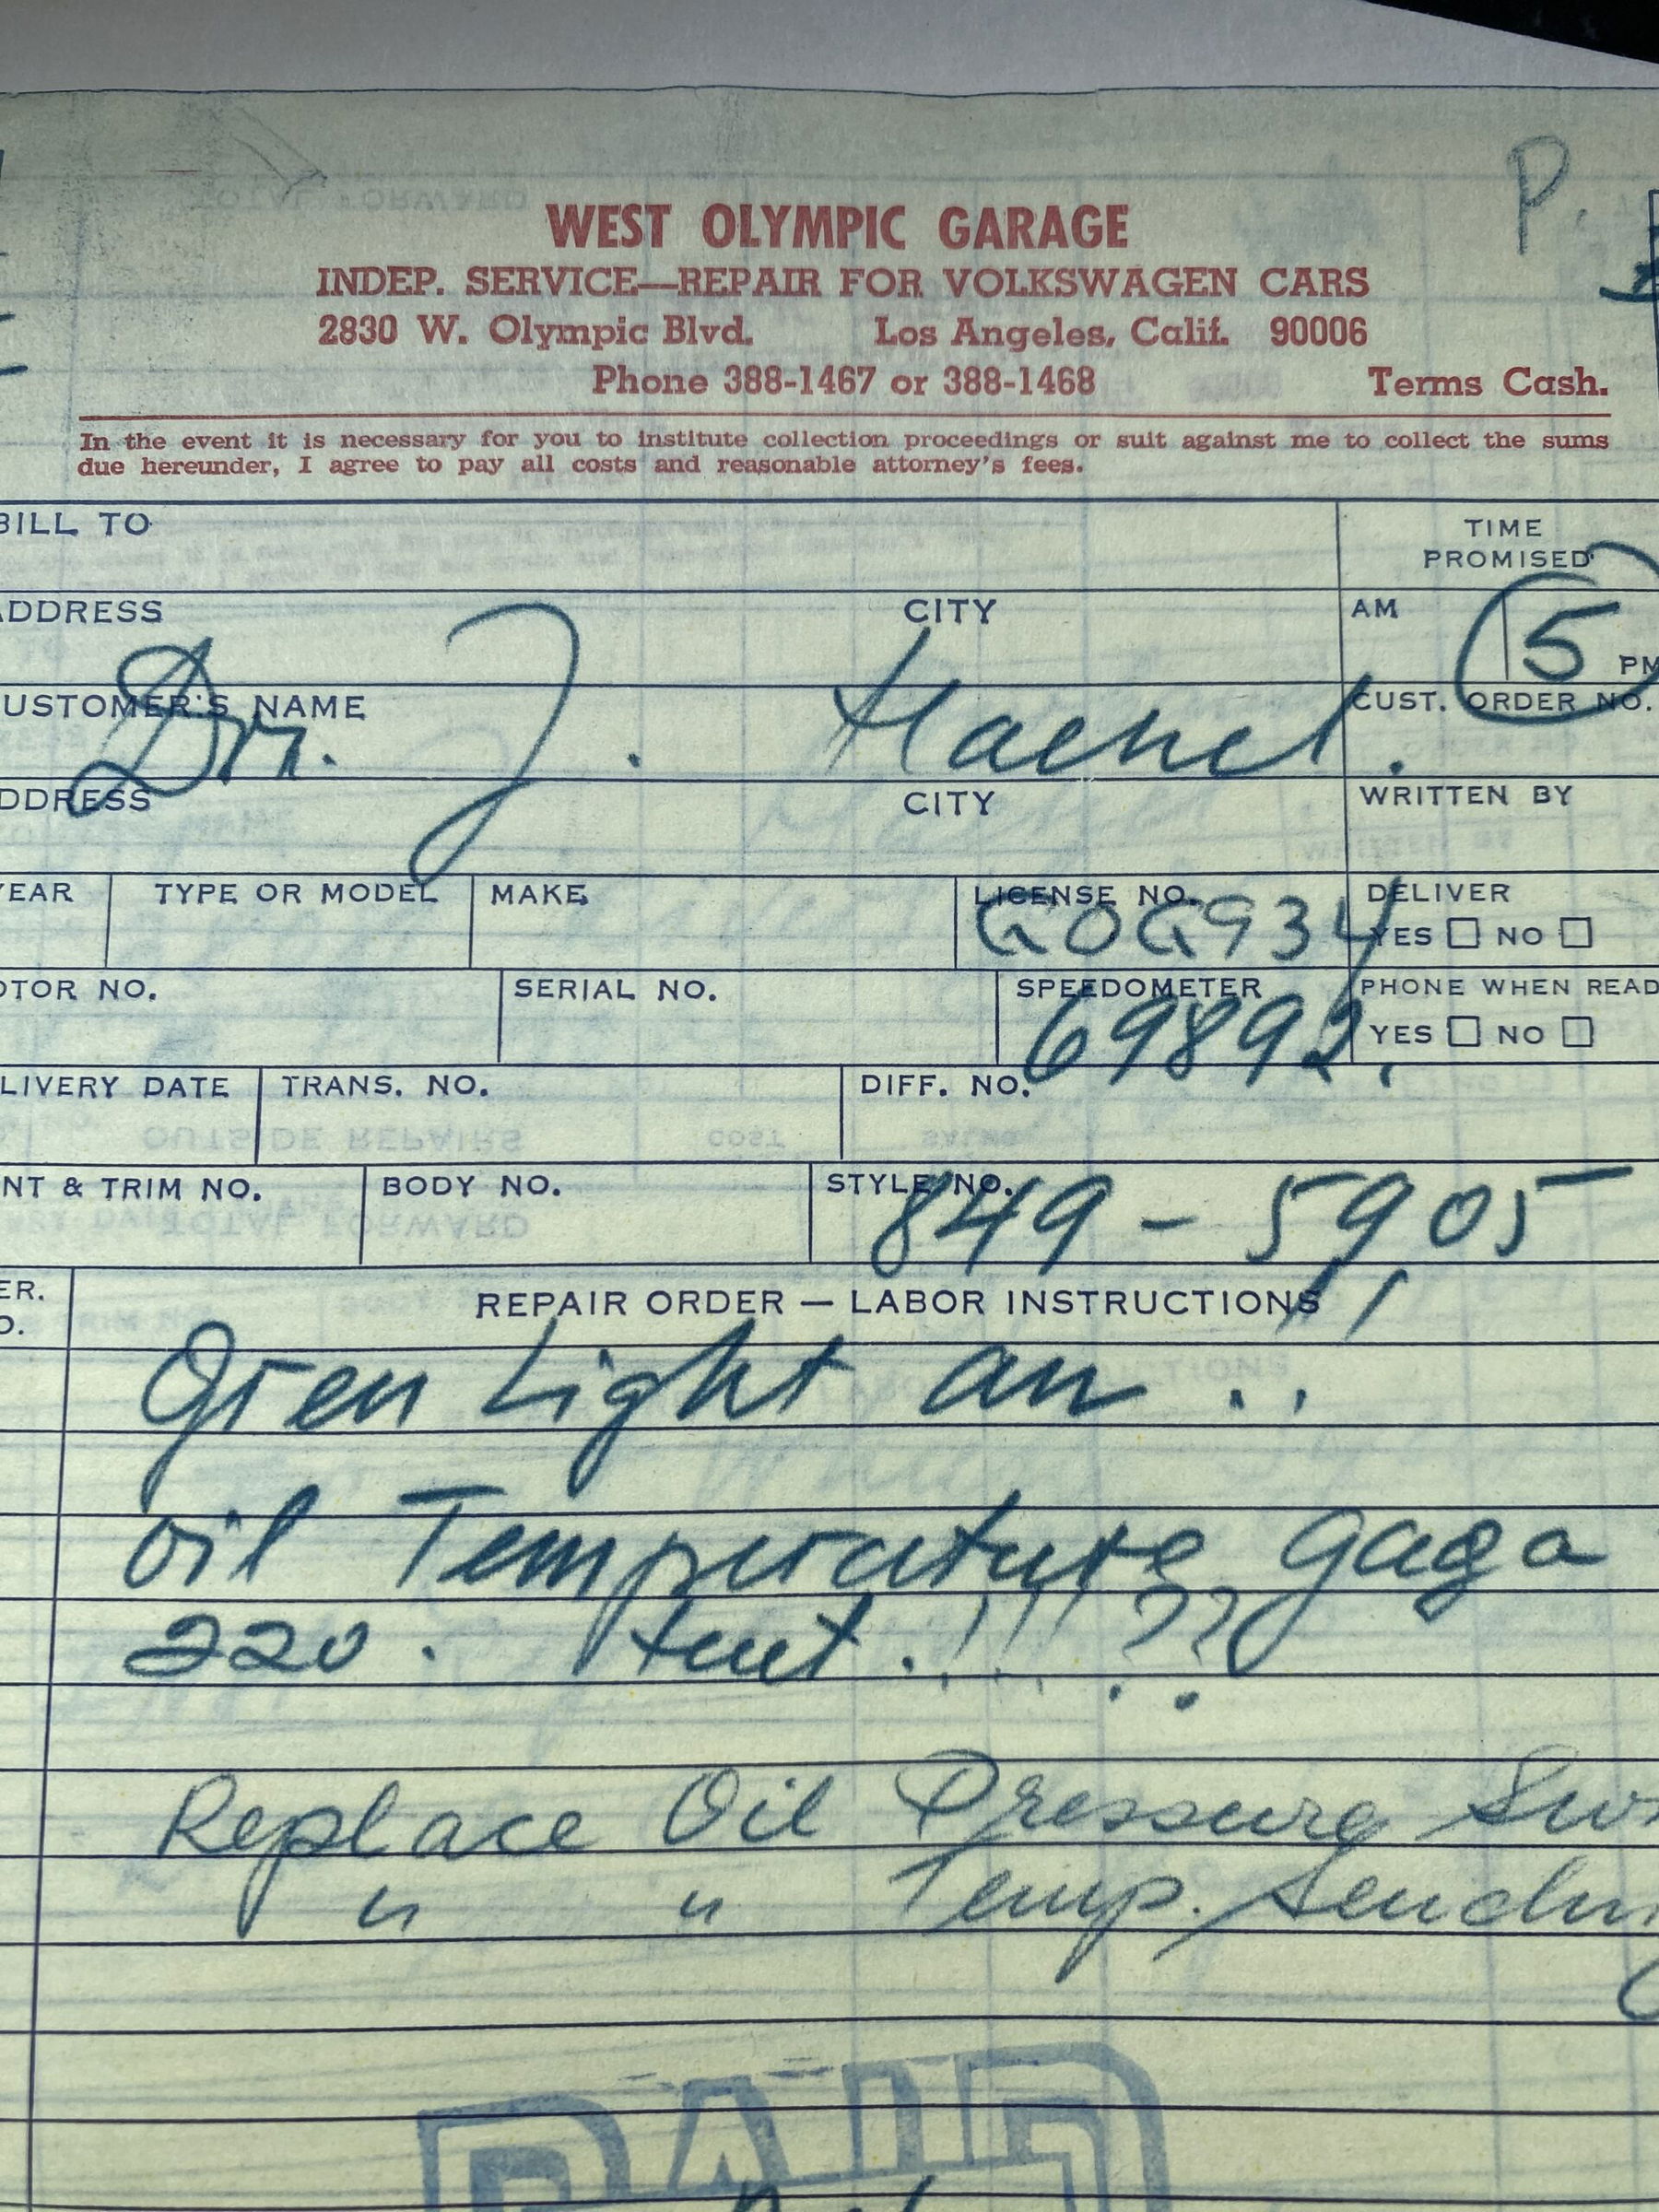 P.
WEST OLYMPIC GARAGE
INDEP. SERVICE—REPAIR FOR VOLKSWAGEN CARS
2830 W. Olympic Blvd. Los Angeles, Calif. 90006
Phone 388-1467 or 388-1468 Terms Cash.
In the event it is necessary for you to institute collection proceedings or suit against me to collect the sums
due hereunder, I agree to pay all costs and reasonable attorney's fees.
BILL TO
TIME
PROMISED
ADDRESS CITY AM 5 PM
CUSTOMER'S NAME CUST. ORDER NO.
Dr. J.
ADDRESS CITY WRITTEN BY
YEAR TYPE OR MODEL MAKE LICENSE NO. DELIVER
GOG934 YES NO
MOTOR NO. SERIAL NO. SPEEDOMETER PHONE WHEN READ
69892. YES NO
DELIVERY DATE TRANS. NO. DIFF. NO.
NT & TRIM NO. BODY NO. STYLE NO.
849 - 5905
REPAIR ORDER — LABOR INSTRUCTIONS
Gren Light an ..
oil Temperature gaga
220 . !!! ??
Replace Oil Pressure Swi
" " Temp. Sending
PAID